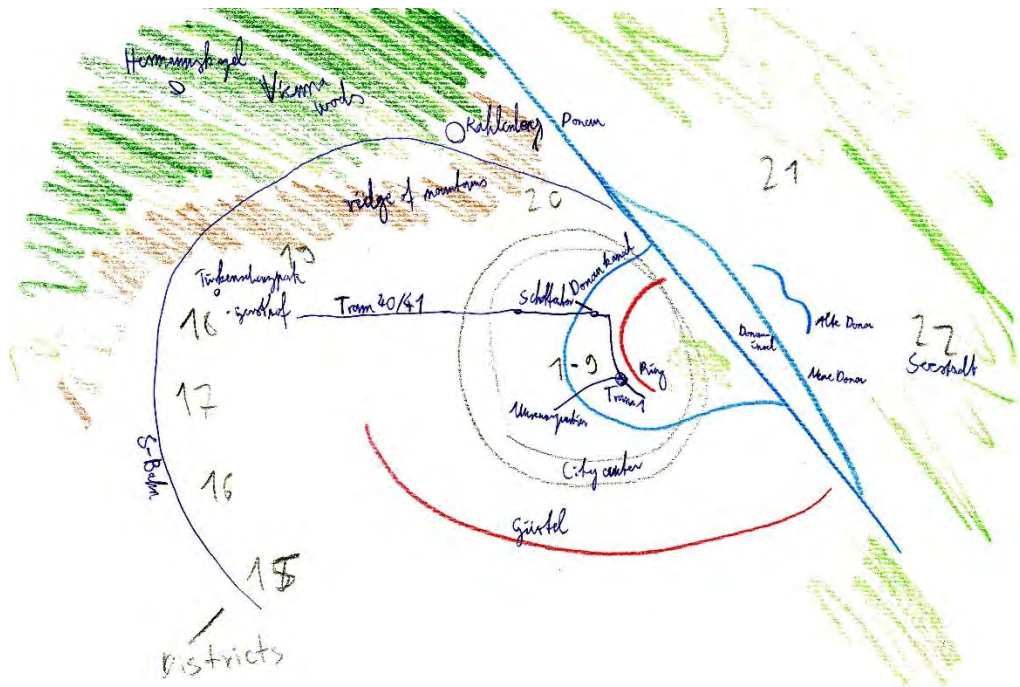 Hermannskogel
Vienna
woods
Kahlenberg
Donau
ridge of mountains
20
21
19
Türkenschanzpark
Gersthof
18
Tram 40/41
Schottentor
Donaukanal
Donau
insel
Alte Donau
Neue Donau
22
Seestadt
1-9
Ring
Tram 1
17
S-Bahn
16
City center
Gürtel
15
Districts